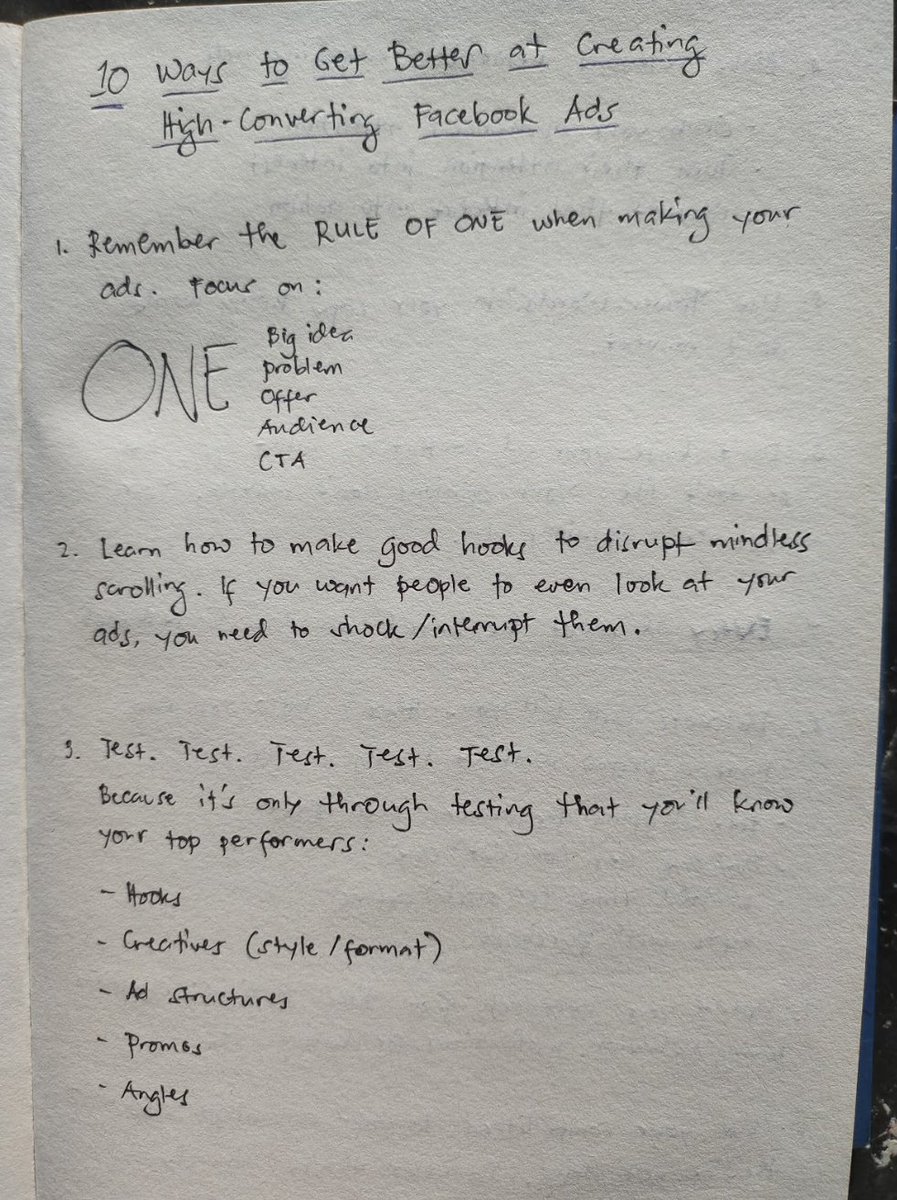 10 Ways to Get Better at Creating
High-Converting Facebook Ads
1. Remember the RULE OF ONE when making your
ads. Focus on:
ONE
Big idea
problem
Offer
Audience
CTA
2. Learn how to make good hooks to disrupt mindless
scrolling. If you want people to even look at your
ads, you need to shock/interrupt them.
3. Test. Test. Test. Test. Test.
Because it's only through testing that you'll know
your top performers:
- Hooks
- Creatives (style/format)
- Ad structures
- Promos
- Angles